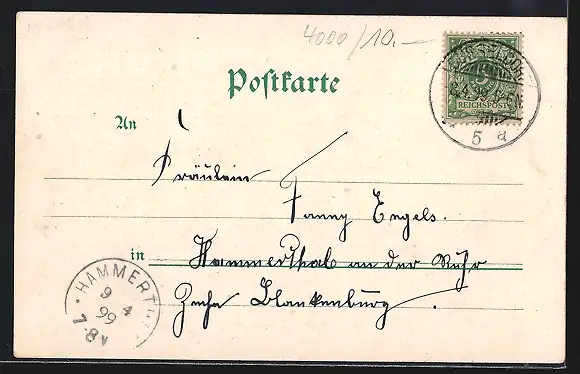 4000/10.-
Postkarte
REICHSPOST
5 a
An
Fräulein
Fanny Engels.
in Hammerthal an der Ruhr
Zeche Blankenburg.
HAMMERTH
9 4
99
7-8V